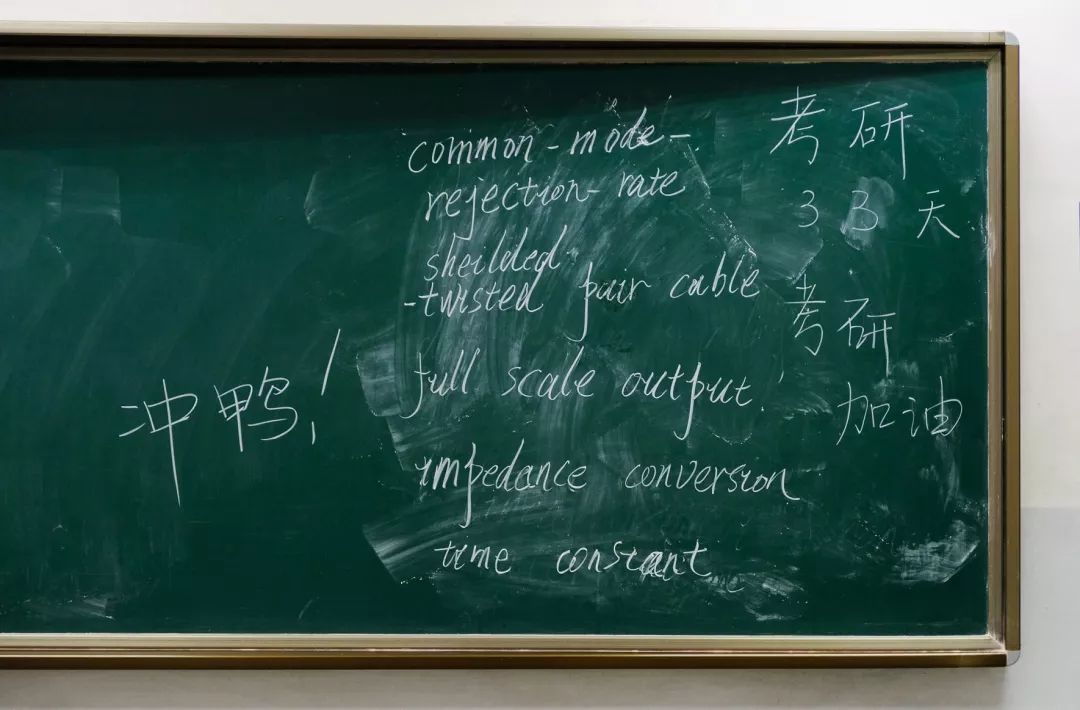 common-mode-
rejection-rate
sheilded
-twisted pair cable
full scale output
impedance conversion
time constant
考研
33天
考研
加油
冲鸭!